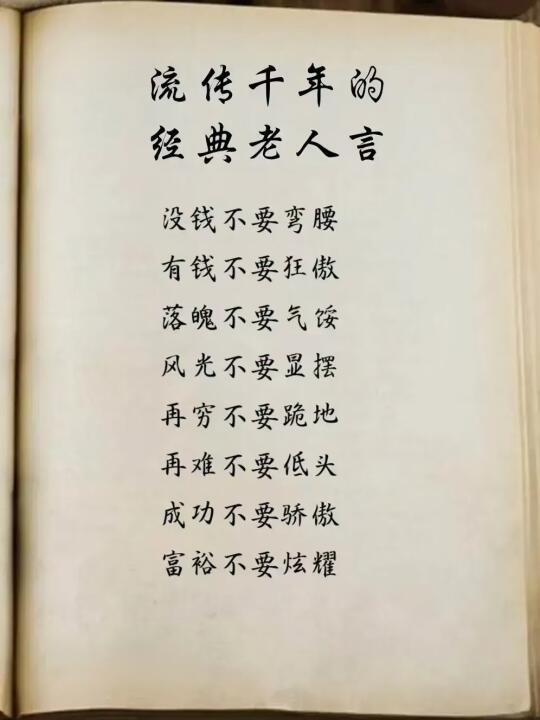 流传千年的
经典老人言
没钱不要弯腰
有钱不要狂傲
落魄不要气馁
风光不要显摆
再穷不要跪地
再难不要低头
成功不要骄傲
富裕不要炫耀